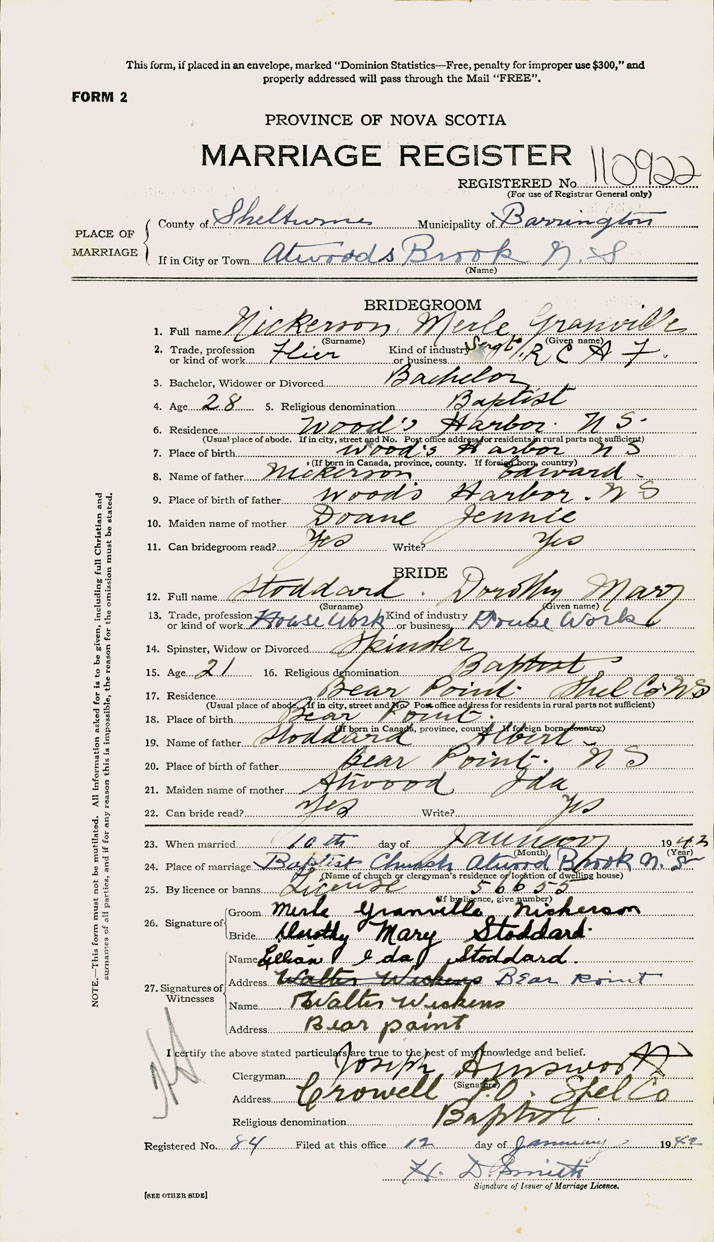 This form, if placed in an envelope, marked "Dominion Statistics—Free, penalty for improper use $300," and
properly addressed will pass through the Mail "FREE".
FORM 2
PROVINCE OF NOVA SCOTIA
MARRIAGE REGISTER
REGISTERED No. 110922
(For use of Registrar General only)
PLACE OF MARRIAGE
County of Shelburne Municipality of Barrington
If in City or Town Atwoods Brook N.S
(Name)
BRIDEGROOM
1. Full name Nickerson, Merle Granville
(Surname) (Given name)
2. Trade, profession or kind of work Flier Kind of industry or business Sergt/R C A F.
3. Bachelor, Widower or Divorced Bachelor
4. Age 28 5. Religious denomination Baptist
6. Residence Wood's Harbor. N S.
(Usual place of abode. If in city, street and No. Post office address for residents in rural parts not sufficient)
7. Place of birth Wood's Harbor N S
(If born in Canada, province, county. If foreign born, country)
8. Name of father Nickerson Edward
9. Place of birth of father Wood's Harbor. N S
10. Maiden name of mother Doane Jennie
11. Can bridegroom read? Yes Write? Yes
BRIDE
12. Full name Stoddard. Dorothy Mary
(Surname) (Given name)
13. Trade, profession or kind of work House Work Kind of industry or business House Work
14. Spinster, Widow or Divorced Spinster
15. Age 21 16. Religious denomination Baptist
17. Residence Bear Point. Shel Co. N S
(Usual place of abode. If in city, street and No. Post office address for residents in rural parts not sufficient)
18. Place of birth Bear Point.
(If born in Canada, province, county. If foreign born, country)
19. Name of father Stoddard Albert
20. Place of birth of father Bear Point. N S
21. Maiden name of mother Atwood Ida
22. Can bride read? Yes Write? Yes
23. When married 10th day of January 1942
(Month) (Year)
24. Place of marriage Baptist Church Atwood Brook N.S
(Name of church or clergyman's residence or location of dwelling house)
25. By licence or banns License 56655
(If by licence, give number)
26. Signature of
Groom Merle Granville Nickerson
Bride Dorothy Mary Stoddard.
27. Signatures of Witnesses
Name Lillian Eda Stoddard.
Address Walter Wickens Bear point
Name Walter Wickens
Address Bear point
I certify the above stated particulars are true to the best of my knowledge and belief.
Clergyman Joseph Ainsworth
(Signature)
Address Crowell P.O. Shel Co
Religious denomination Baptist.
Registered No. 84 Filed at this office 12 day of January 1942
H. D. Smith
Signature of Issuer of Marriage Licence.
[SEE OTHER SIDE]
NOTE.—This form must not be mutilated. All information asked for is to be given, including full Christian and
surnames of all parties, and if for any reason this is impossible, the reason for the omission must be stated.